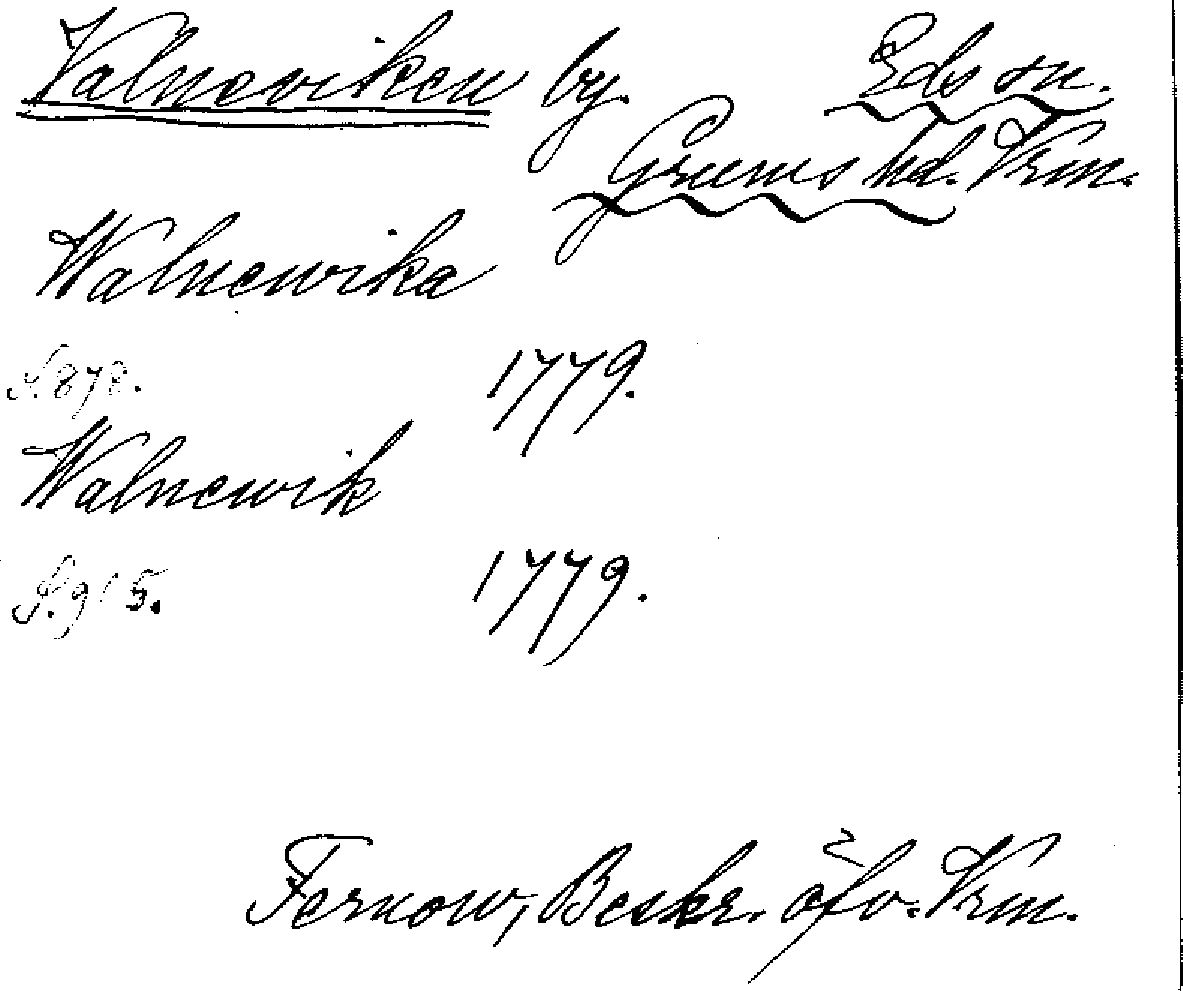 Valneviken by. Eds sn.
Grums hd. Vrm.
Walnewika
S. 878. 1779.
Walnewik
S. 915. 1779.
Fernow, Beskr. öfv. Vrm.